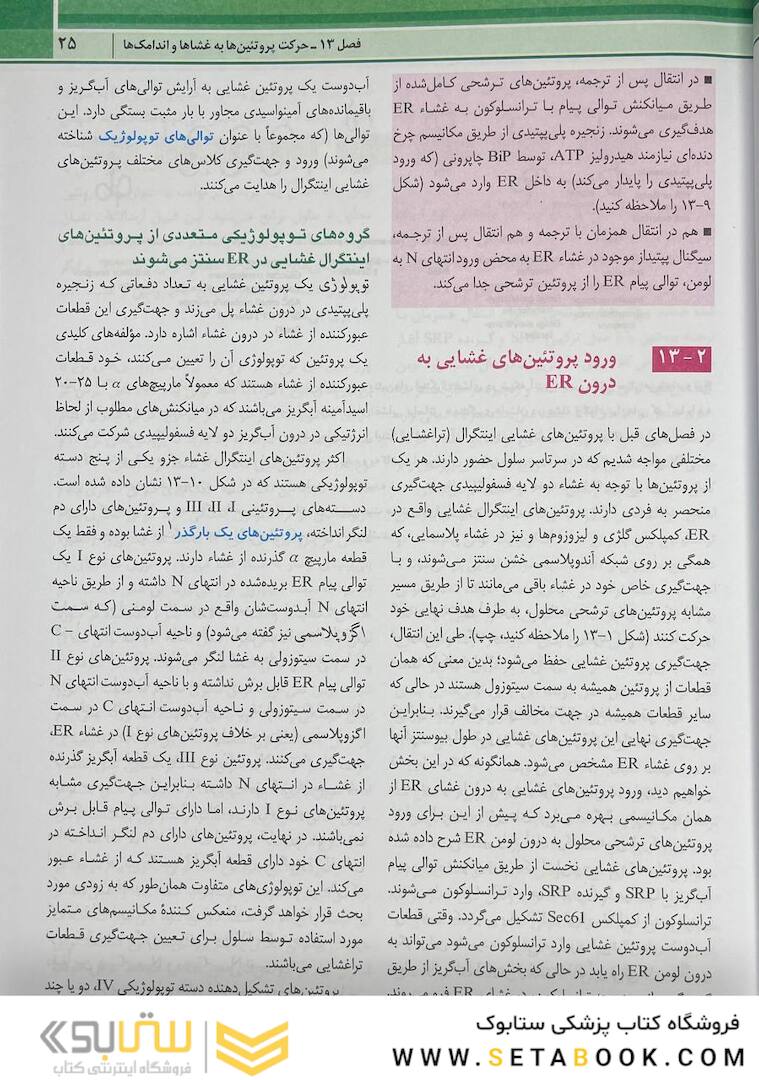 فصل ۱۳ ـ حرکت پروتئین‌ها به غشاها و اندامک‌ها
۲۵
■ در انتقال پس از ترجمه، پروتئین‌های ترشحی کامل‌شده از
طریق میانکنش توالی پیام با ترانسلوکون به غشاء ER
هدف‌گیری می‌شوند. زنجیره پلی‌پپتیدی از طریق مکانیسم چرخ
دنده‌ای نیازمند هیدرولیز ATP، توسط BiP چاپرونی (که ورود
پلی‌پپتیدی را پایدار می‌کند) به داخل ER وارد می‌شود (شکل
۹-۱۳ را ملاحظه کنید).
■ هم در انتقال همزمان با ترجمه و هم انتقال پس از ترجمه،
سیگنال پپتیداز موجود در غشاء ER به محض ورود انتهای N به
لومن، توالی پیام ER را از پروتئین ترشحی جدا می‌کند.
۱۳-۲ ورود پروتئین‌های غشایی به
درون ER
در فصل‌های قبل با پروتئین‌های غشایی اینتگرال (تراغشایی)
مختلفی مواجه شدیم که در سرتاسر سلول حضور دارند. هر یک
از پروتئین‌ها با توجه به غشاء دو لایه فسفولیپیدی جهت‌گیری
منحصر به فردی دارند. پروتئین‌های اینتگرال غشایی واقع در
ER، کمپلکس گلژی و لیزوزوم‌ها و نیز در غشاء پلاسمایی، که
همگی بر روی شبکه آندوپلاسمی خشن سنتز می‌شوند، و با
جهت‌گیری خاص خود در غشاء باقی می‌مانند تا از طریق مسیر
مشابه پروتئین‌های ترشحی محلول، به طرف هدف نهایی خود
حرکت کنند (شکل ۱-۱۳ را ملاحظه کنید، چپ). طی این انتقال،
جهت‌گیری پروتئین غشایی حفظ می‌شود؛ بدین معنی که همان
قطعات از پروتئین همیشه به سمت سیتوزول هستند در حالی که
سایر قطعات همیشه در جهت مخالف قرار می‌گیرند. بنابراین
جهت‌گیری نهایی این پروتئین‌های غشایی در طول بیوسنتز آنها
بر روی غشاء ER مشخص می‌شود. همانگونه که در این بخش
خواهیم دید، ورود پروتئین‌های غشایی به درون غشای ER از
همان مکانیسمی بهره می‌برد که پیش از این برای ورود
پروتئین‌های ترشحی محلول به درون لومن ER شرح داده شده
بود. پروتئین‌های غشایی نخست از طریق میانکنش توالی پیام
آب‌گریز با SRP و گیرنده SRP، وارد ترانسلوکون می‌شوند.
ترانسلوکون از کمپلکس Sec61 تشکیل می‌گردد. وقتی قطعات
آب‌دوست پروتئین غشایی وارد ترانسلوکون می‌شود می‌تواند به
درون لومن ER راه یابد در حالی که بخش‌های آب‌گریز از طریق
آب‌دوست یک پروتئین غشایی به آرایش توالی‌های آب‌گریز و
باقیمانده‌های آمینواسیدی مجاور با بار مثبت بستگی دارد. این
توالی‌ها (که مجموعاً با عنوان توالی‌های توپولوژیک شناخته
می‌شوند) ورود و جهت‌گیری کلاس‌های مختلف پروتئین‌های
غشایی اینتگرال را هدایت می‌کنند.
گروه‌های توپولوژیکی متعددی از پروتئین‌های
اینتگرال غشایی در ER سنتز می‌شوند
توپولوژی یک پروتئین غشایی به تعداد دفعاتی که زنجیره
پلی‌پپتیدی در درون غشاء پل می‌زند و جهت‌گیری این قطعات
عبورکننده از غشاء در درون غشاء اشاره دارد. مؤلفه‌های کلیدی
یک پروتئین که توپولوژی آن را تعیین می‌کنند، خود قطعات
عبورکننده از غشاء هستند که معمولاً مارپیچ‌های α با ۲۵-۲۰
اسیدآمینه آبگریز می‌باشند که در میانکنش‌های مطلوب از لحاظ
انرژتیکی در درون آب‌گریز دو لایه فسفولیپیدی شرکت می‌کنند.
اکثر پروتئین‌های اینتگرال غشاء جزو یکی از پنج دسته
توپولوژیکی هستند که در شکل ۱۰-۱۳ نشان داده شده است.
دسته‌های پروتئینی I، II، III و پروتئین‌های دارای دم
لنگر انداخته، پروتئین‌های یک بارگذر۱ از غشا بوده و فقط یک
قطعه مارپیچ α گذرنده از غشاء دارند. پروتئین‌های نوع I یک
توالی پیام ER بریده‌شده در انتهای N داشته و از طریق ناحیه
انتهای N آبدوست‌شان واقع در سمت لومنی (که سمت
اگزوپلاسمی نیز گفته می‌شود) و ناحیه آب‌دوست انتهای - C
در سمت سیتوزولی به غشا لنگر می‌شوند. پروتئین‌های نوع II
توالی پیام ER قابل برش نداشته و با ناحیه آب‌دوست انتهای N
در سمت سیتوزولی و ناحیه آب‌دوست انتهای C در سمت
اگزوپلاسمی (یعنی بر خلاف پروتئین‌های نوع I) در غشاء ER،
جهت‌گیری می‌کنند. پروتئین نوع III، یک قطعه آبگریز گذرنده
از غشاء در انتهای N داشته بنابراین جهت‌گیری مشابه
پروتئین‌های نوع I دارند، اما دارای توالی پیام قابل برش
نمی‌باشند. در نهایت، پروتئین‌های دارای دم لنگر انداخته در
انتهای C خود دارای قطعه آبگریز هستند که از غشاء عبور
می‌کند. این توپولوژی‌های متفاوت همان‌طور که به زودی مورد
بحث قرار خواهد گرفت، منعکس کنندهٔ مکانیسم‌های متمایز
مورد استفاده توسط سلول برای تعیین جهت‌گیری قطعات
تراغشایی می‌باشند.
پروتئین‌های تشکیل‌دهنده دسته توپولوژیکی IV، دو یا چند
فروشگاه کتاب پزشکی ستابوک
WWW.SETABOOK.COM
ستابوک
فروشگاه اینترنتی کتاب